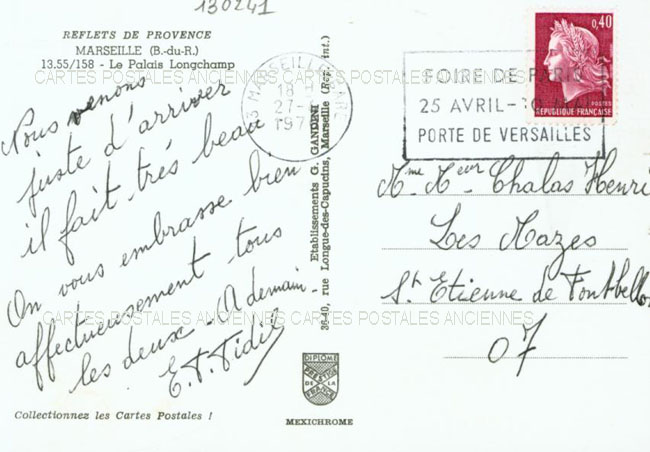 130241
REFLETS DE PROVENCE
MARSEILLE (B.-du-R.)
13.55/158 - Le Palais Longchamp
CARTES POSTALES ANCIENNES CARTES POSTALES ANCIENNES
Nous venons
juste d'arriver
il fait très beau
On vous embrasse bien
affectueusement tous
les deux. A demain.
E.T. Fidil
Collectionnez les Cartes Postales !
Etablissements G. GANDINI
36-40, rue Longue-des-Capucins, Marseille (Rep. int.)
DIPLOME
PRESTIGE
DE LA
FRANCE
MEXICHROME
13 MARSEILLE GARE
18 H
27-
197
FOIRE DE PARIS
25 AVRIL-10 MAI
PORTE DE VERSAILLES
0,40
POSTES
REPUBLIQUE FRANÇAISE
Mme Meur Chalas Henri
Les Mazes
St Etienne de Fontbellon
07
CARTES POSTALES ANCIENNES CARTES POSTALES ANCIENNES